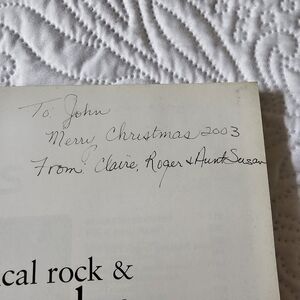 To: John
Merry Christmas 2003
From: Claire, Roger & Aunt Susan
ical rock &